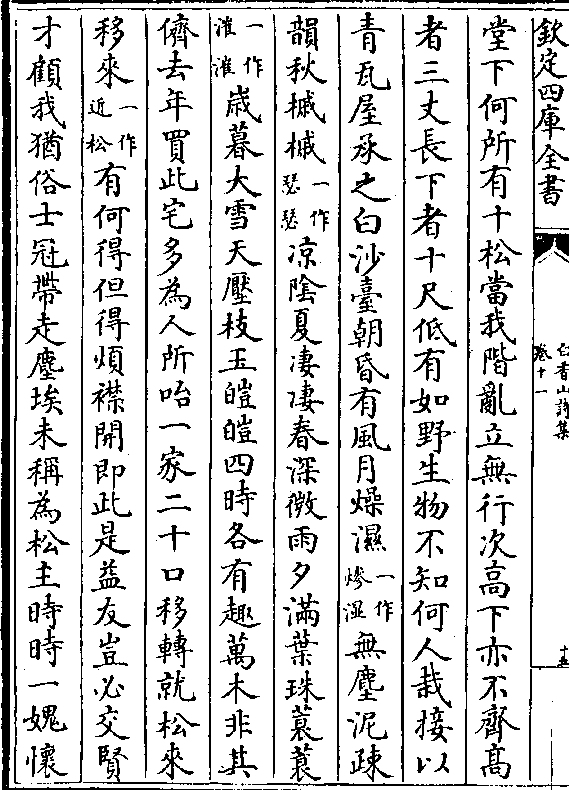 欽定四庫全書
白香山詩集
卷十一
十五
堂下何所有十松當我階亂立無行次高下亦不齊髙
者三丈長下者十尺低有如野生物不知何人栽接以
青瓦屋承之白沙臺朝昏有風月燥濕一作湿無塵泥疎
韻秋槭槭一作瑟瑟凉陰夏凄凄春深微雨夕滿葉珠蓑蓑
一作漼漼歲暮大雪天壓枝玉皚皚四時各有趣萬木非其
儕去年買此宅多為人所咍一家二十口移轉就松來
移來一作近松有何得但得煩襟開即此是益友豈必交賢
才顧我猶俗士冠帶走塵埃未稱為松主時時一媿懷